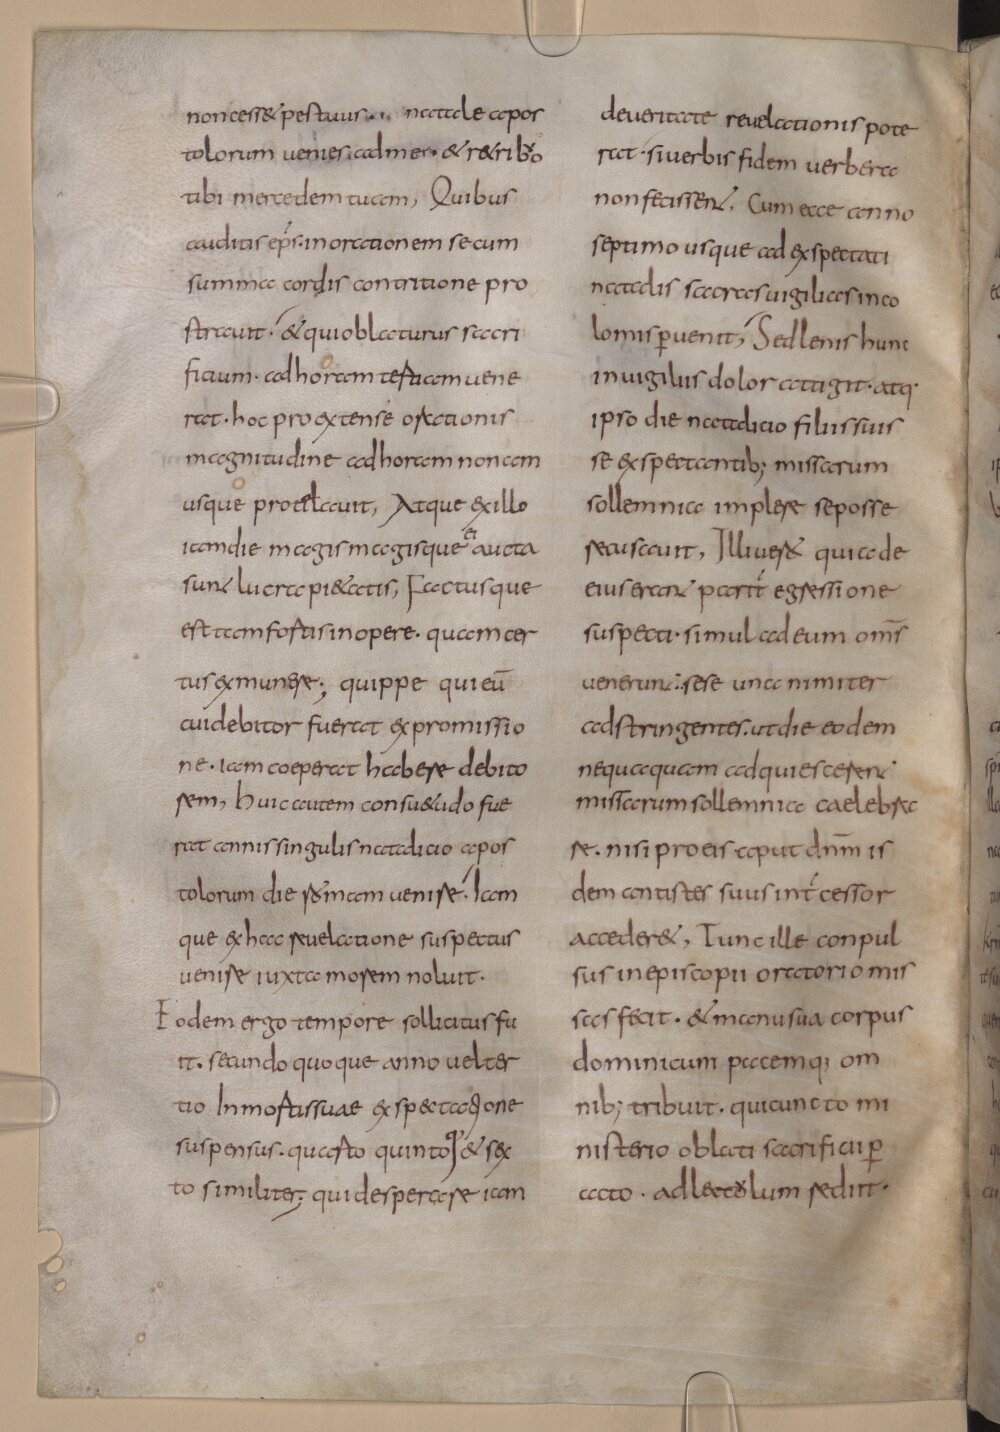 noncess& pes tuus... natale apos
tolorum venies ad me. & r&ribuo
tibi mercedem tuam, Quibus
auditis ep̄s. in orationem se cum
summa cordis contritione pro
stravit. & qui oblaturus sacri
ficium. ad horam tertiam vene
rat. hoc pro extense orationis
magnitudine ad horam nonam
usque protelavit, Atque ex illo
iam die magis magisque ei aucta
sunt lucra pi&atis, Factusque
est tam fortis in opere. quam cer
tus ex munere; quippe qui eū
cui debitor fuerat ex promissio
ne. iam coeperat habere debito
rem, Huic autem consu&udo fue
rat annis singulis natalicio apos
tolorum die romam venire. Iam
que ex hac revelatione suspectus
venire iuxta morem noluit.
Eodem ergo tempore sollicitus fu
it. secundo quoque anno vel ter
tio In mortis suae expectatione
suspensus. quarto quintoq; & sex
to similiter; qui desperare iam
de veritate revelationis pote
rat. si verbis fidem verbera
non fecissent, Cum ecce anno
septimo usque ad exspectati
natalis sacras vigilias inco
lomis pervenit, Sed lenis hunc
in vigiliis dolor attigit. atq·
ipso die natalicio filiis suis
se exspectantib; missarum
sollemnia implere se posse
recusavit, Illi vero & qui ac de
eius erant pariī egressione
suspecti. simul ad eum om̄s
venerunt. sese unanimiter
adstringentes. ut die eodem
nequaquam adquiescerent
missarum sollemnia caelebra
re. nisi pro eis aput dnm̄ is
dem antistes suus int̄cessor
acceder&, Tunc ille conpul
sus in episcopii oratorio mis
sas fecit. & manu sua corpus
dominicum pacemq; om
nib; tribuit. qui cuncto mi
nisterio oblati sacrificii p̱
acto. ad lectolum rediit.